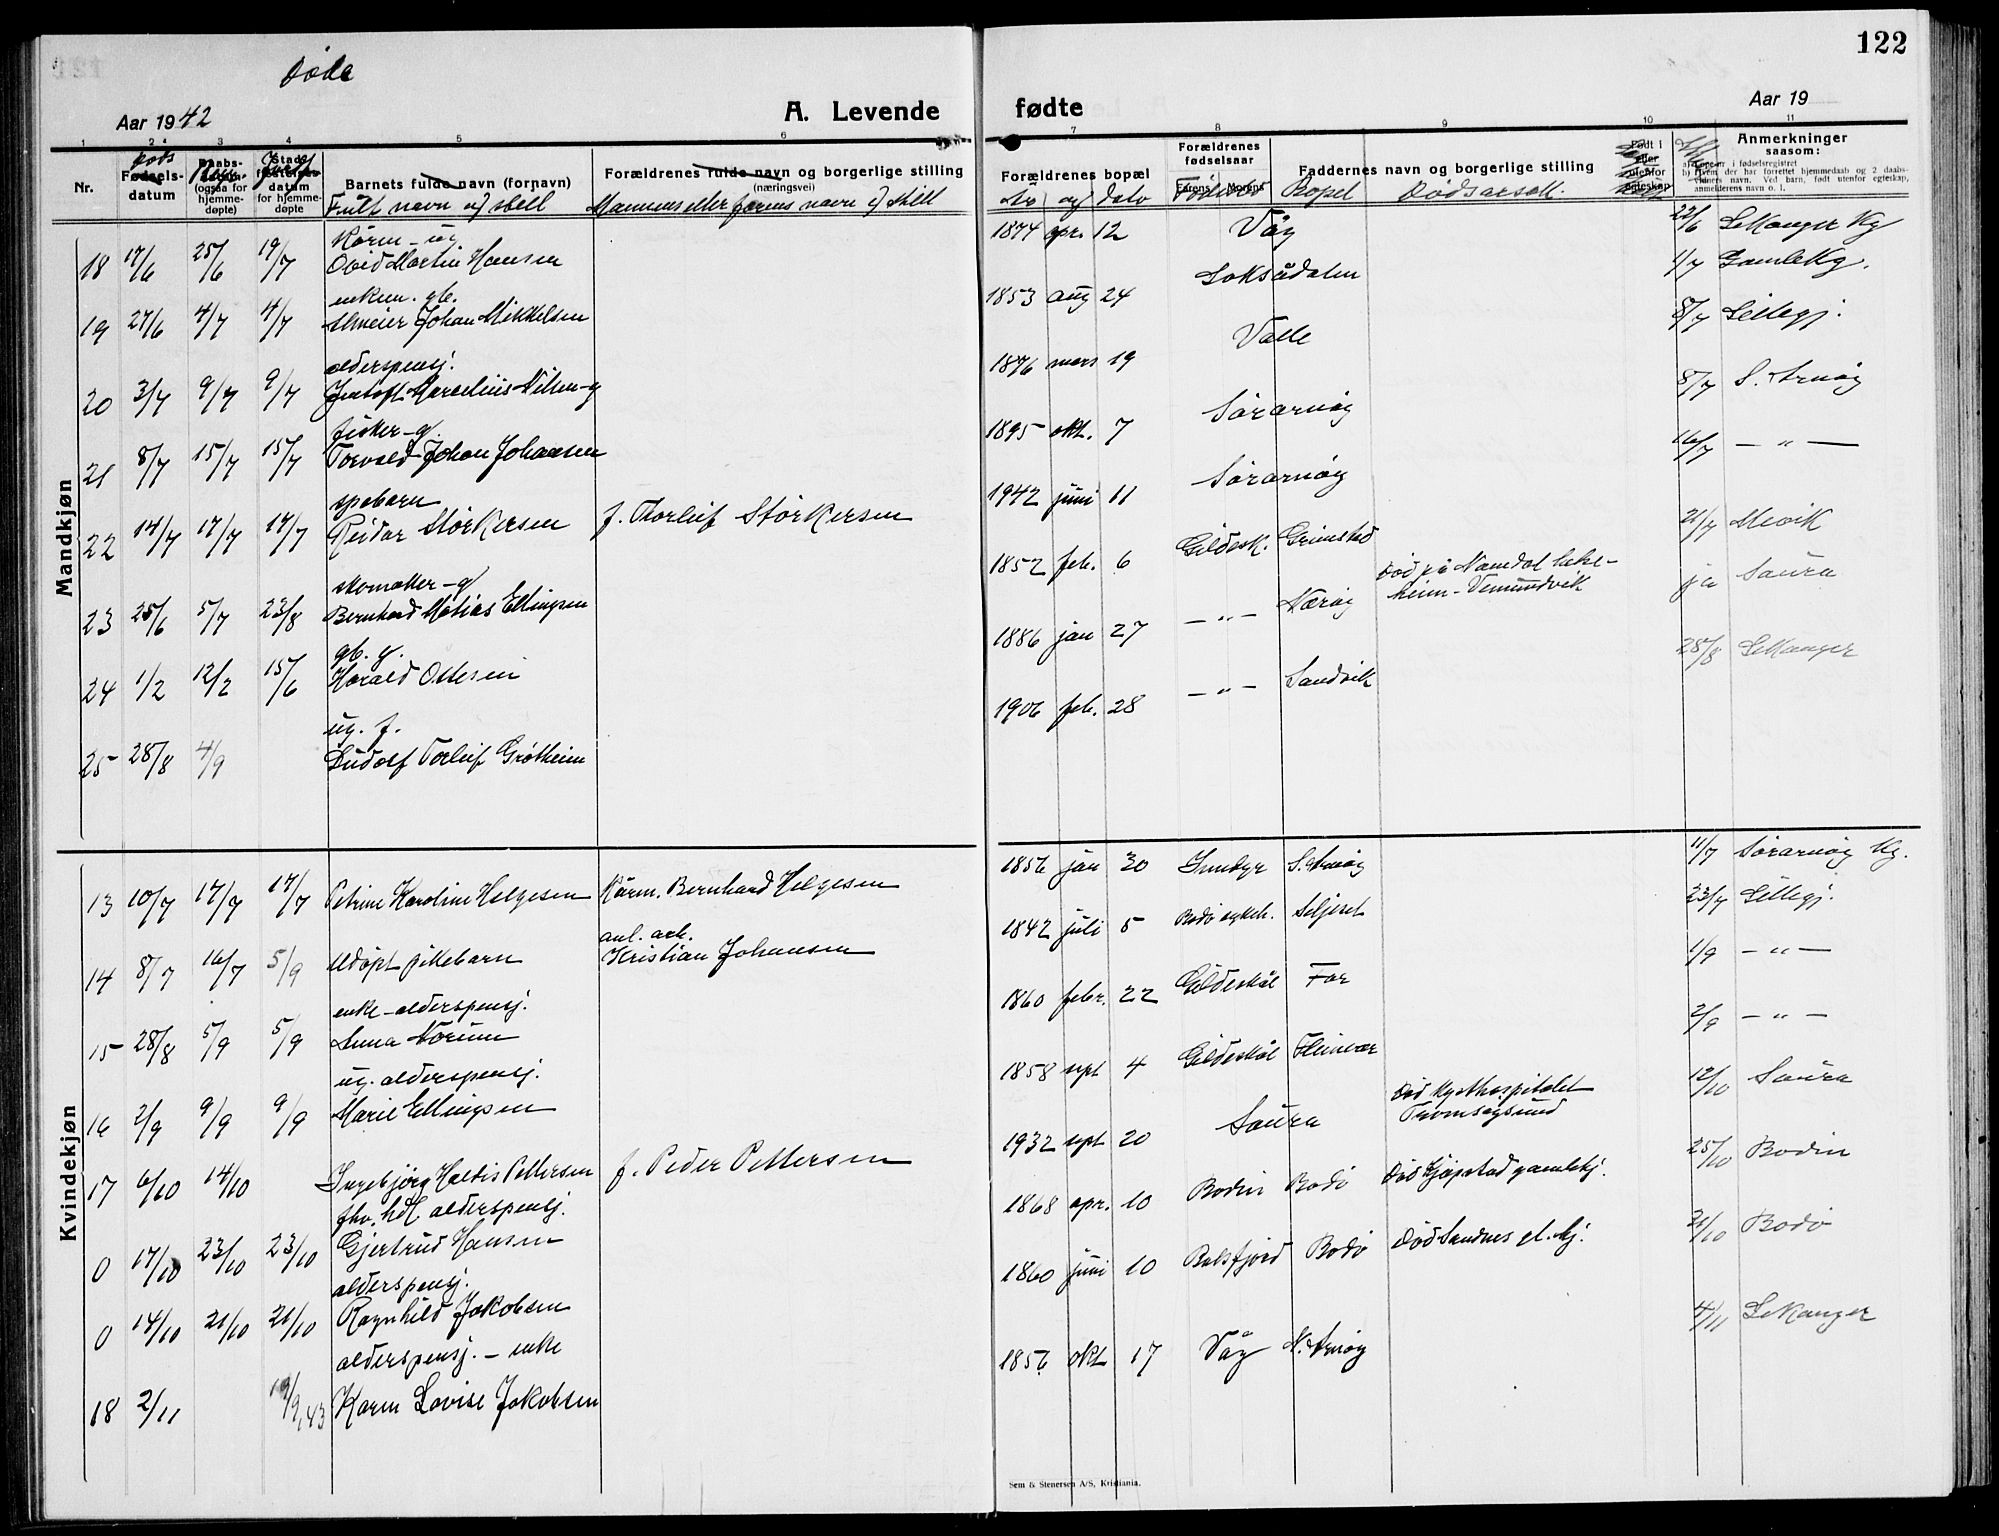 122
Døde
Aar 1942
A. Levende
fødte
Aar 19
1 2 3 4 5 6
7 8 9 10 11
Nr.
Døds
Fødsels-
datum
Daabs-
(ogsaa for
hjemme-
døpte)
Stad-
fæstelses-
datum
for hjemme-
døpte
Barnets fulde navn (fornavn)
Fullt navn og stell
Forældrenes fulde navn og borgerlige stilling
(næringsvei)
Mannens eller farens navn og still
Forældrenes bopæl
År og dato
Forældrenes
fødselsaar
Farens Morens
Fødested
Faddernes navn og borgerlige stilling
Bopel Dødsårsak.
Født i
eller
utenfor
egteskap
Anmerkninger
saasom:
a) Loper nr i fødselsregistret
b) Hvem der har forrettet hjemmedaab og 2 daabs-
vidners navn. Ved barn, født utenfor egteskap,
anmelderens navn o. l.
Mandkjøn
Kårm - ug
18 17/6 25/6 19/7 Ovid Martin Hansen
1874 apr. 12 Våg 22/6 Lekanger Kg
enkem. gb.
19 27/6 4/7 4/7 Johan Mikkelsen
1853 aug 24 Soksådalen 1/7 Gamle Kg.
alderspensj.
20 3/7 9/7 9/7 Jentoft Marcelius Nilsen - g
1876 mars 19 Valle 8/7 Lillegj.
fisker - g.
21 8/7 15/7 15/7 Torvald Johan Johansen
1895 okt. 7 Sørarnøy 8/7 S. Arnøy
spebarn
22 14/7 17/7 17/7 Reidar Størkersen f. Thorleif Størkersen
1942 juni 11 Sørarnøy 16/7 — " —
skomaker - g
23 25/6 5/7 23/8 Bernhard Matias Ellingsen
1852 feb. 6 Gildesk. Grimstad Død på Namdal
heim - Vemundvik 21/7 Mevik
gb. g.
24 1/2 12/2 15/6 Harald Olsen
1886 jan 27 — " — Nærøy ja Saura
ug. f.
25 28/8 4/9 Ludolf Torleif Grøtheim
1906 feb. 28 — " — Sandvik 28/8 Lekanger
Kvindekjøn
13 10/7 17/7 17/7 Petrine Karoline Helgesen Kårm. Bernhard Helgesen
1856 jan 30 S. Arnøy 11/7 Sørarnøy Kg.
anl. arb.
14 8/7 16/7 5/9 Udøpt pikebarn Kristian Johansen
1842 juli 5 Bodø sykeh. Seljeset 23/7 Lillegj.
enke - alderspensj.
15 28/8 5/9 5/9 Anna Norum
1860 febr. 22 Gildeskål For 1/9 — " —
ug. alderspensj.
16 2/9 9/9 9/9 Marie Ellingsen
1858 sept 4 Gildeskål Fleinvær 2/9 — " —
17 6/10 14/10 Ingebjørg Haldis Pettersen f. Peder Pettersen
1932 sept 20 Saura Død Kysthospitalet
Tromsøysund 12/10 Saura
fhv. hdl. alderspensj.
0 17/10 23/10 23/10 Gjertrud Hansen
1868 apr. 10 Bodin Bodø Død Kjøpstad gamlehj. 25/10 Bodin
alderspensj.
0 14/10 21/10 21/10 Ragnhild Jakobsen
1860 juni 10 Balsfjord Bodø Død Sandnes gl. hj. 21/10 Bodø
alderspensj. - enke
18 2/11 19/9 43 Karen Lovise Jakobsen
1856 okt 17 Våg N. Arnøy 4/11 Lekanger
Sem & Stenersen A/S, Kristiania.